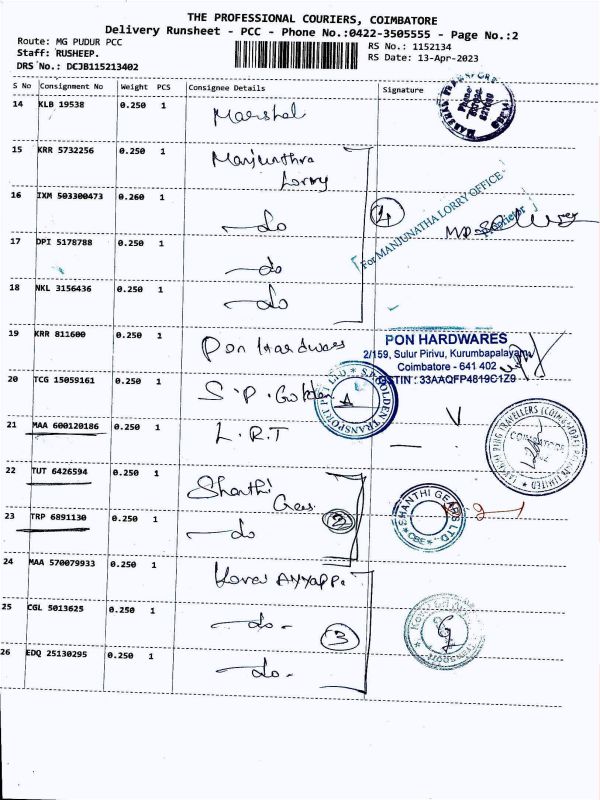 THE PROFESSIONAL COURIERS, COIMBATORE
Delivery Runsheet - PCC - Phone No.:0422-3505555 - Page No.:2
Route: MG PUDUR PCC
RS No.: 1152134
Staff: RUSHEEP.
RS Date: 13-Apr-2023
DRS No.: DCJB115213402
S No Consignment No Weight PCS Consignee Details Signature
14 KLB 19538 0.250 1 Marshal
15 KRR 5732256 0.250 1 Manjunthra
Lorry
16 IXM 503300473 0.260 1 do
4
For MANJUNATHA LORRY OFFICE
Proprietor
17 DPI 5178788 0.250 1 do
18 NKL 3156436 0.250 1 do
19 KRR 811600 0.250 1 Pon Hardwares
PON HARDWARES
2/159, Sulur Pirivu, Kurumbapalayam
Coimbatore - 641 402
GSTIN : 33AAQFP4819C1Z9
20 TCG 15059161 0.250 1 S.P. Golden
21 MAA 600120186 0.250 1 L.R.T
22 TUT 6426594 0.250 1 Shanthi
Gears
SHANTHI GEARS LTD.
* CBE *
23 TRP 6891130 0.250 1 do
2
24 MAA 570079933 0.250 1 Kovai Ayyapp.
25 CGL 5013625 0.250 1 do -
3
26 EDQ 25130295 0.250 1 do -